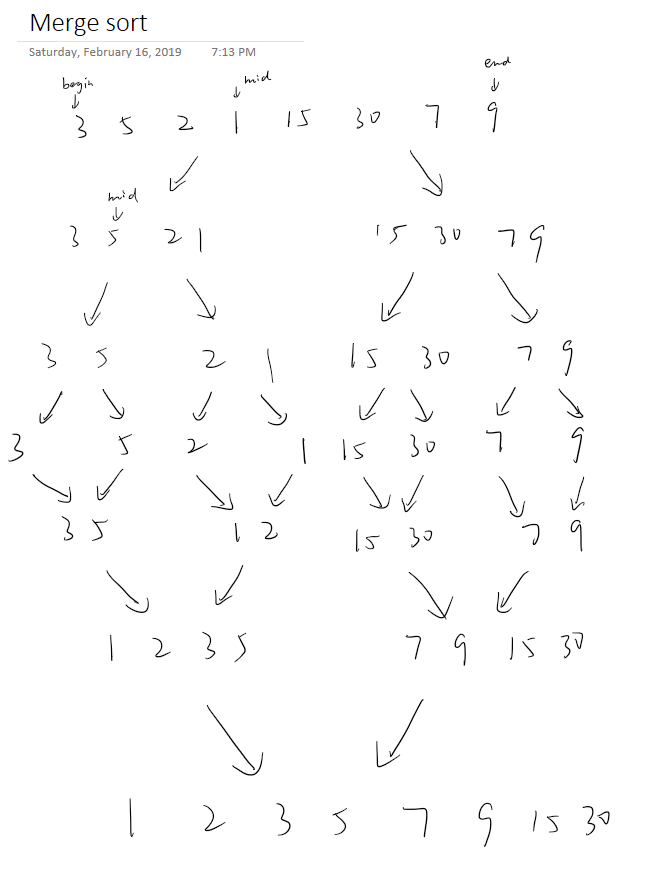 Merge sort
Saturday, February 16, 2019 7:13 PM
begin mid end
3 5 2 1 15 30 7 9
mid
3 5 2 1 15 30 7 9
3 5 2 1 15 30 7 9
3 5 2 1 15 30 7 9
3 5 1 2 15 30 7 9
1 2 3 5 7 9 15 30
1 2 3 5 7 9 15 30